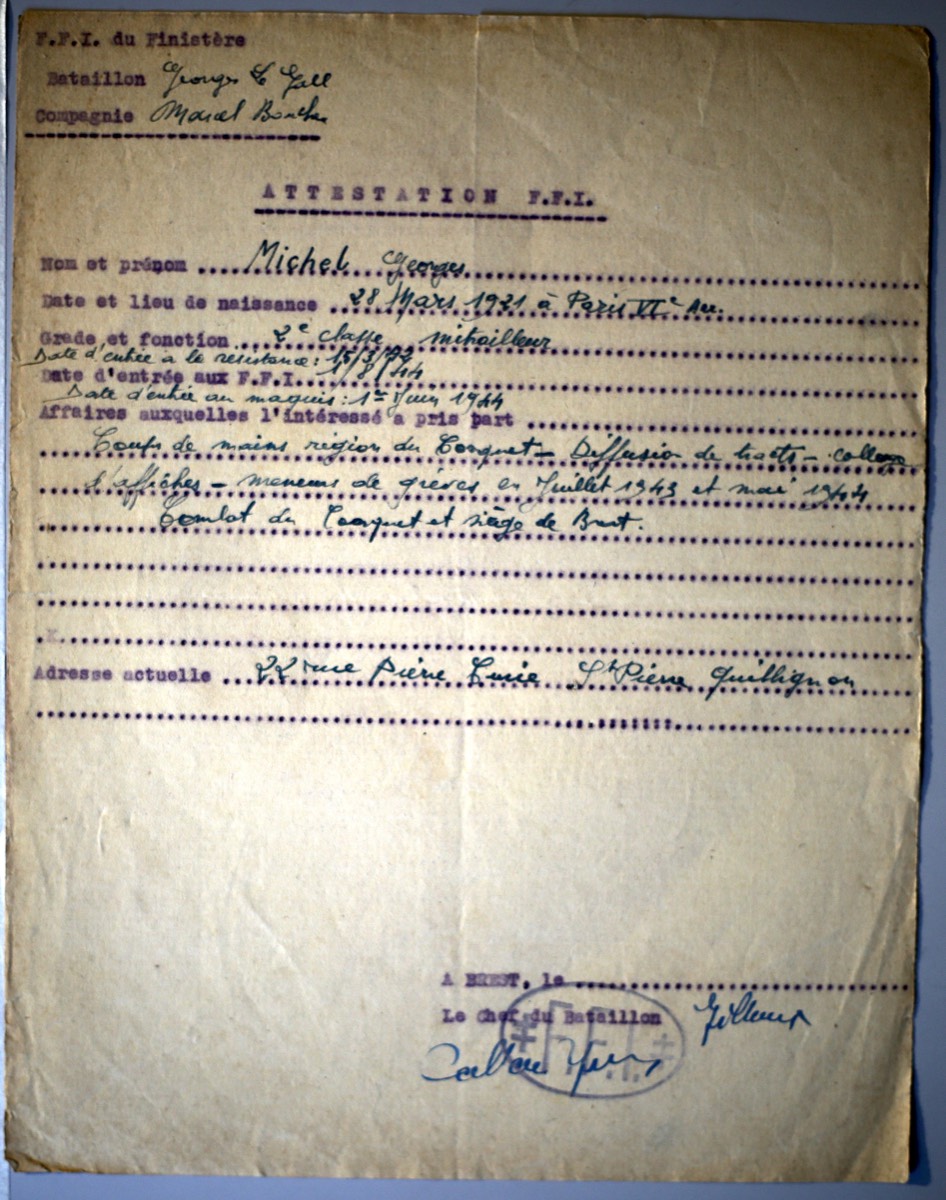 F.F.I. du Finistère
Bataillon Georges Le Gall
Compagnie Marcel
ATTESTATION F.F.I.
Nom et prénom ....Michel Georges
Date et lieu de naissance ..28 Mars 1921 à Paris VIe Arr.
Grade et fonction ..2e classe mitrailleur
Date d'entrée a la resistance: 15/3/
Date d'entrée aux F.F.I...1/8/44
Date d'entrée au maquis: 1er Juin 1944
Affaires auxquelles l'intéressé a pris part
Coups de mains région du Conquet - Diffusion de tracts - collage
d'affiches - meneurs de grèves en Juillet 1943 et mai 1944
Combat du Conquet et siège de Brest.
.X.
Adresse actuelle ...22 rue Pierre Curie St Pierre Quilbignon
A BREST, le
Le Chef du Bataillon
F.F.I.